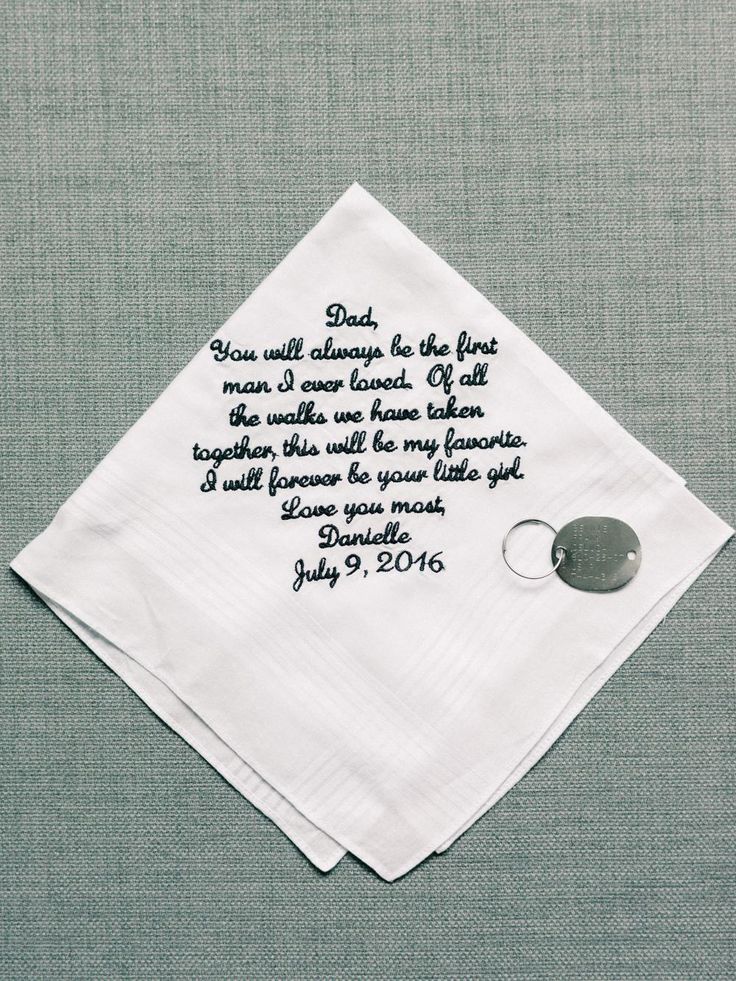 Dad,
You will always be the first
man I ever loved. Of all
the walks we have taken
together, this will be my favorite.
I will forever be your little girl.
Love you most,
Danielle
July 9, 2016